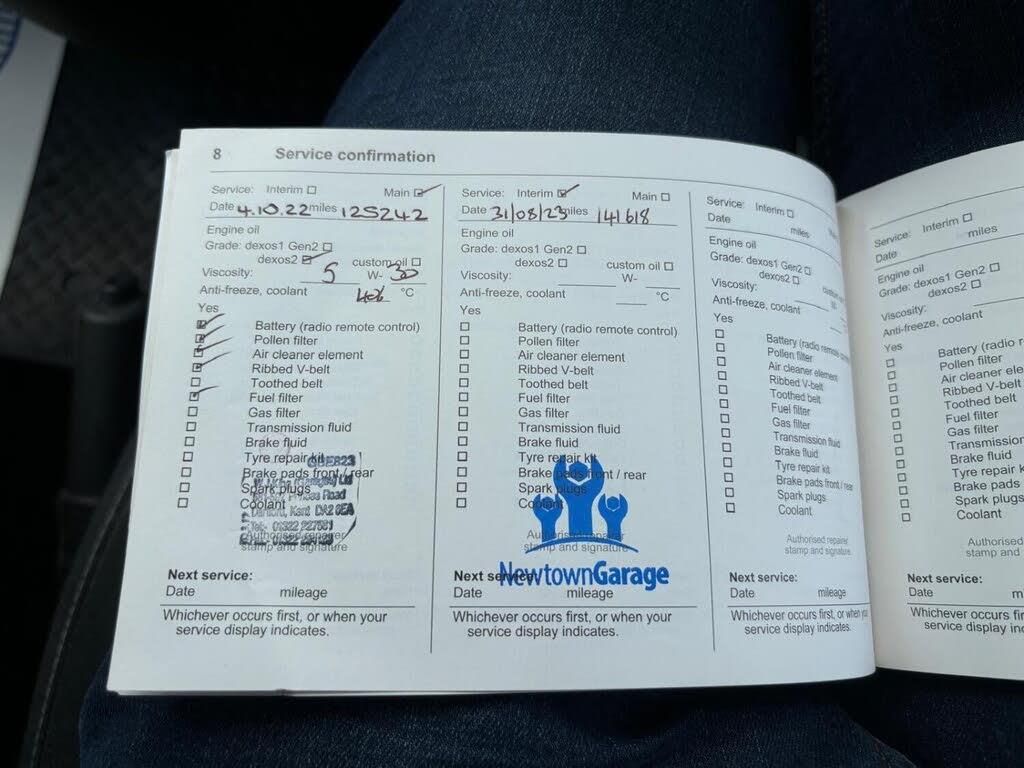 8 Service confirmation
Service: Interim Main
Date 4.10.22 miles 125242
Engine oil
Grade: dexos1 Gen2
dexos2 custom oil
Viscosity: 5 W- 30
Anti-freeze, coolant °C
Yes
Battery (radio remote control)
Pollen filter
Air cleaner element
Ribbed V-belt
Toothed belt
Fuel filter
Gas filter
Transmission fluid
Brake fluid
Tyre repair kit
Brake pads front / rear
Spark plugs
Coolant
Road
Kent DA2 6EA
Tel:- 01322 227581
Authorised repairer
stamp and signature
Next service:
Date mileage
Whichever occurs first, or when your
service display indicates.
Service: Interim Main
Date 31/08/23 miles 141618
Engine oil
Grade: dexos1 Gen2
dexos2 custom oil
Viscosity: W-
Anti-freeze, coolant °C
Yes
Battery (radio remote control)
Pollen filter
Air cleaner element
Ribbed V-belt
Toothed belt
Fuel filter
Gas filter
Transmission fluid
Brake fluid
Tyre repair kit
Brake pads front / rear
Spark plugs
Coolant
Authorised repairer
stamp and signature
NewtownGarage
Next service:
Date mileage
Whichever occurs first, or when your
service display indicates.
Service: Interim
Date miles
Engine oil
Grade: dexos1 Gen2
dexos2
Viscosity:
Anti-freeze, coolant
Yes
Battery (radio remote
Pollen filter
Air cleaner element
Ribbed V-belt
Toothed belt
Fuel filter
Gas filter
Transmission fluid
Brake fluid
Tyre repair kit
Brake pads front / rear
Spark plugs
Coolant
Authorised repairer
stamp and signature
Next service:
Date mileage
Whichever occurs first, or when
service display indicates.
Service: Interim
Date miles
Engine oil
Grade: dexos1 Gen2
dexos2
Viscosity:
Anti-freeze, coolant
Yes
Battery (radio
Pollen filter
Air cleaner
Ribbed V-belt
Toothed belt
Fuel filter
Gas filter
Transmission
Brake fluid
Tyre repair
Brake pads
Spark plugs
Coolant
Authorised
stamp and
Next service:
Date
Whichever occurs
service display